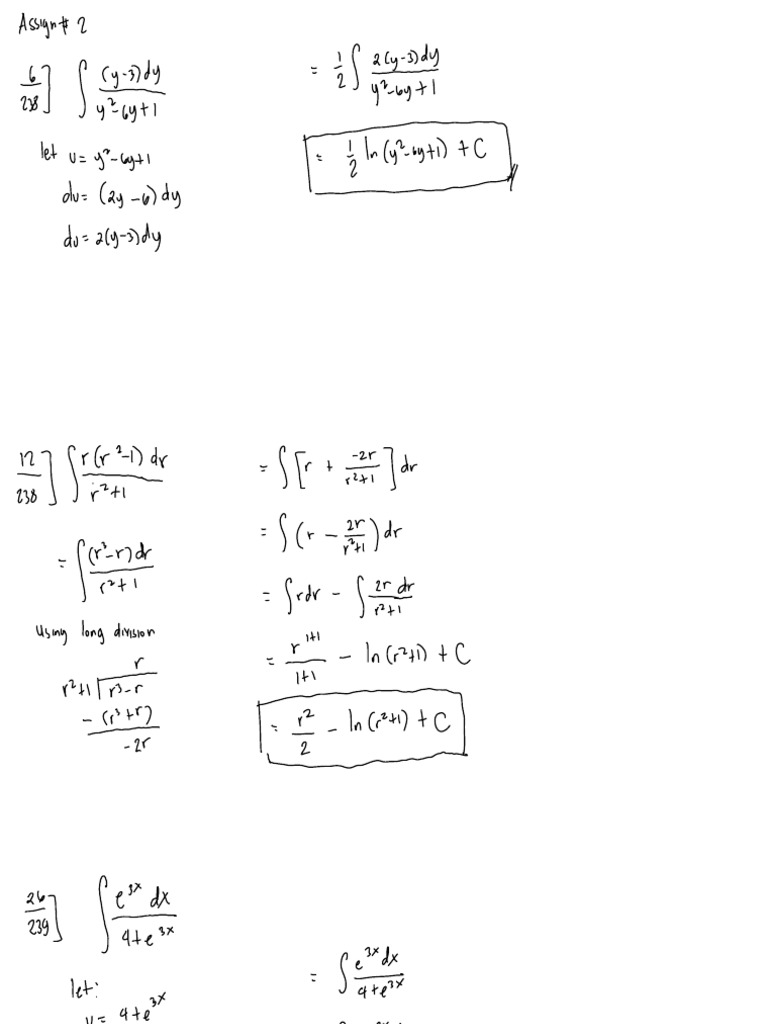 Assign# 2
6/238] ∫ (y-3)dy / y²-6y+1
let u = y²-6y+1
du = (2y-6)dy
du = 2(y-3)dy
= 1/2 ∫ 2(y-3)dy / y²-6y+1
= 1/2 ln(y²-6y+1) + C
12/238] ∫ r(r²-1) dr / r²+1
= ∫ (r³-r)dr / r²+1
Using long division
r
r²+1 | r³-r
- (r³+r)
-2r
= ∫ [r + -2r / r²+1] dr
= ∫ (r - 2r / r²+1) dr
= ∫ rdr - ∫ 2r dr / r²+1
= r^(1+1) / 1+1 - ln(r²+1) + C
= r² / 2 - ln(r²+1) + C
26/239] ∫ e^3x dx / 4+e^3x
let:
u = 4+e^3x
= ∫ e^3x dx / 4+e^3x